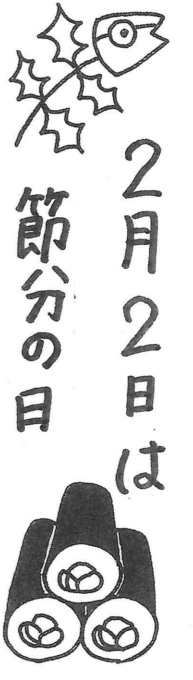 2月2日は
節分の日